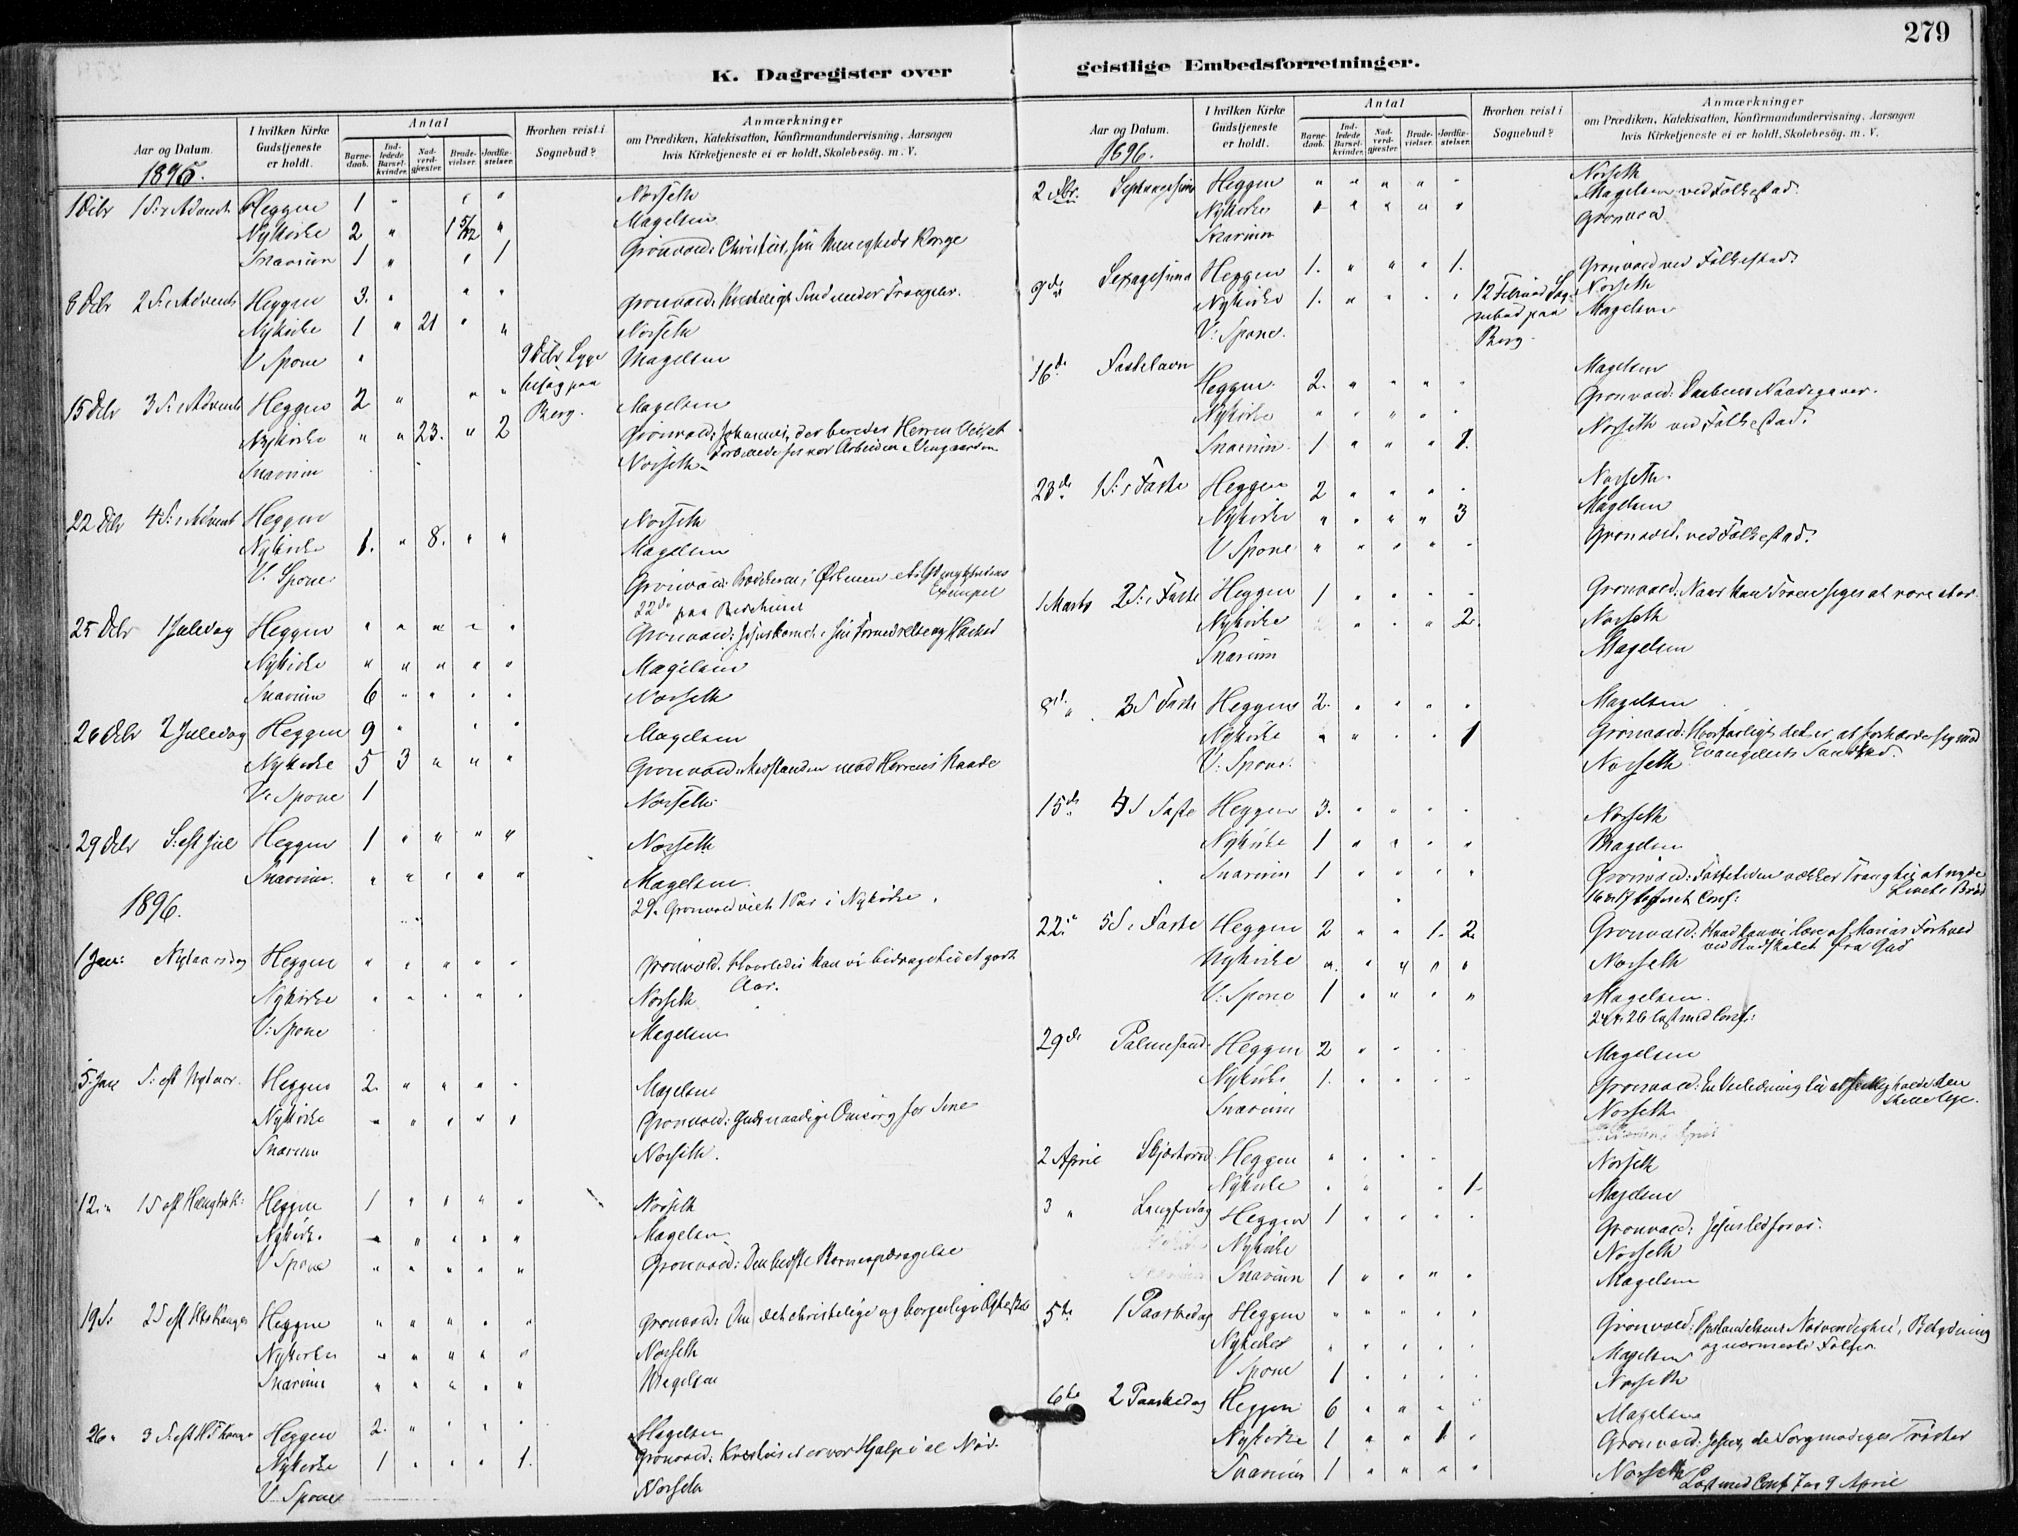 279
K. Dagregister over geistlige Embedsforretninger.
Aar og Datum.
I hvilken Kirke Gudstjeneste er holdt.
Antal
Barnedaab.
Indledede Barselkvinder.
Nadverdgjæster.
Brudevielser.
Jordfæstelser.
Hvorhen reist i Sognebud?
Anmærkninger
om Prædiken, Katekisation, Konfirmandundervisning, Aarsagen
hvis Kirketjeneste ei er holdt, Skolebesög. m. V.
1895.
1 Debr 1 S. i Advent Heggen 1 " " " Norseth
Nykirke 2 " 1 5/12 " Magelsen
Snarum 1 " " 1 Grönvold: Christus, sin Menigheds Konge
8 Debr 2 S. i Advent Heggen 3. " " " Grönvold:
Nykirke 1 " 21 " " Norseth
V. Spone " 9 Debr Magelsen
paa
15 Debr 3 S. i Advent Heggen 2 " " " Berg. Magelsen
Nykirke " " 23. " 2 Grönvold: Johannes, der bereder Herren Vei, et
Forbillede for vor Arbeiden i Vingaarden
Snarum Norseth
22 Debr 4 S. i Advent Heggen Norseth
Nykirke 1. " 8. " " Magelsen
V. Spone. Grönvold:
Exempel
22de paa
25 Debr 1 Juledag Heggen " " " " " Grönvold:
Nykirke " " " " " Magelsen
Snarum 6 " " " " Norseth
26 Debr 2 Juledag Heggen 9 " " " Magelsen
Nykirke 5 3 " " " Grönvold: Modstanden mod Herrens Naade
V. Spone 1 Norseth
29 Debr S. eft Jul Heggen 1 " " " " Norseth
Snarum. " " " " " Magelsen.
29. Grönvold viet 1 Par i Nykirke.
1896.
1 Jan: Nytaarsdag Heggen " " " " " Grönvold. Hvorledes kan vi bidrage til et godt
Aar.
Nykirke " " " " " Norseth
V: Spone Magelsen
5. Jan S. eft Nytaar. Heggen 2. " " " " Magelsen
Nykirke " " " " " Grönvold: Guds naadige Omsorg for sine
Snarum Norseth.
12. " 1 S eft Hellig 3 K: Heggen 1 " " " " Norseth
Nykirke. " " " " " Magelsen
V Spone " " " " " Grönvold: Den bedste Börneopdragelse
19. 2 S eft H 3 Konger Heggen " " " " " Grönvold: Om det christelige og borgerlige Ægteskab
Nykirke " " " " " Norseth
Snarum " " " " " Magelsen
26 " 3 S. eft H 3 Konger Heggen 2. " " " " Magelsen
Nykirke 1 " " " 1. Grönvold: Kristus er vor Hjælp i al Nöd.
V Spone Norseth
Aar og Datum.
I hvilken Kirke Gudstjeneste er holdt.
Antal
Barnedaab.
Indledede Barselkvinder.
Nadverdgjæster.
Brudevielser.
Jordfæstelser.
Hvorhen reist i Sognebud?
Anmærkninger
om Prædiken, Katekisation, Konfirmandundervisning, Aarsagen
hvis Kirketjeneste ei er holdt, Skolebesög. m. V.
1896.
2 Fbr: Septuagesima Heggen " " " " " Norseth
Nykirke " " " " " Magelsen ved Folkestad.
Snarum Grönvold
9de Sexagesima Heggen 1. " " " 1. Grönvold ved Folkestad.
Nykirke 1. " " " " 12 Februar Sognebud paa Berg. Norseth
V: Spone. Magelsen
16de Fastelavn Magelsen
Heggen. 2. " " " " Grönvold: Daabens Naadegaver.
Nykirke " " " " " Norseth ved Folkestad.
Snarum. 1 " " " 1.
23de 1 S. i Faste Heggen 2 " " " " Norseth.
Nykirke " " " " 3 Magelsen
V Spone " " " " " Grönvold. ved Folkestad.
1 Marts 2 S. i Faste Heggen 1 " " " " Grönvold: Naar kan Troen siges at være stor.
Nykirke " " " 2. Norseth
Snarum Magelsen
8de " 3 S Faste Heggen 2. " " " " Magelsen
Nykirke " " " " 1 Grönvold: Hvor farligt det er at forhærde sig mod
Evangeliets Sandhed.
V: Spone. Norseth
15de 4 S Faste Heggen 3. " " " " Norseth
Nykirke 1 " " " " Magelsen
Snarum 1 " " " " Grönvold: Fastetiden vækker Trang til at nyde
Livets Bröd
22. 5 S. i Faste Heggen 2 " " 1. 2. Grönvold: Hvad kan vi lære af Marias Forhold
ved Budskabet fra Gud
Nykirke " " " " " Norseth
V: Spone 1 " " " " Magelsen.
24 & 26 læst med Conf:
29de Palmesönd. Heggen 2 " " " Magelsen
Nykirke 1. " " " " Grönvold: En Veiledning til at helligholde den
stille Uge.
Snarum Norseth
2 April Skjærtorsd. Heggen " " " " Norseth
Nykirke " " " 1. Magelsen
3 " Langfredag Heggen 1 " " " " Grönvold: Jesus led for os.
Nykirke Norseth
Snarum 1 " " " " Magelsen
5te 1 Paaskedag Heggen " " " " " Grönvold: Opstandelsens Nödvendighed, Betydning
og nærmeste Fölger
Nykirke " " " " " Magelsen
V Spone 1 " " " " Norseth
6te 2 Paaskedag Heggen 6 " " " " Magelsen
Nykirke 1 " " 1 " Grönvold: Jesus, de Sorgmodiges Tröster
Snarum 1 " " " " Norseth
Læst med Conf 7 og 9 April